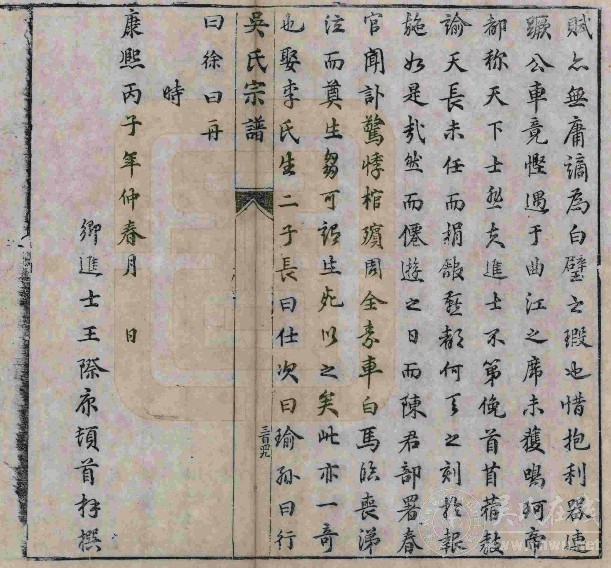 賦亦無庸謫為白璧之瑕也惜抱利器連
蹶公車竟慳遇于曲江之席未獲鳴珂帝
都称天下士歷亥進士不第俛首苜蓿敖
諭天長未任而捐館郡何天之刻於報
施如是哉然而僊遊之日而陳君部署春
官聞訃驚悸棺殯周全素車白馬臨喪涕
泣而奠生芻可謂生死以之矣此亦一奇
也娶李氏生二子長曰仕次曰瑜孫曰行
吳氏宗譜
三百四九
曰徐曰冉
時
康熙丙子年仲春月 日
鄉進士王際康頓首拜撰